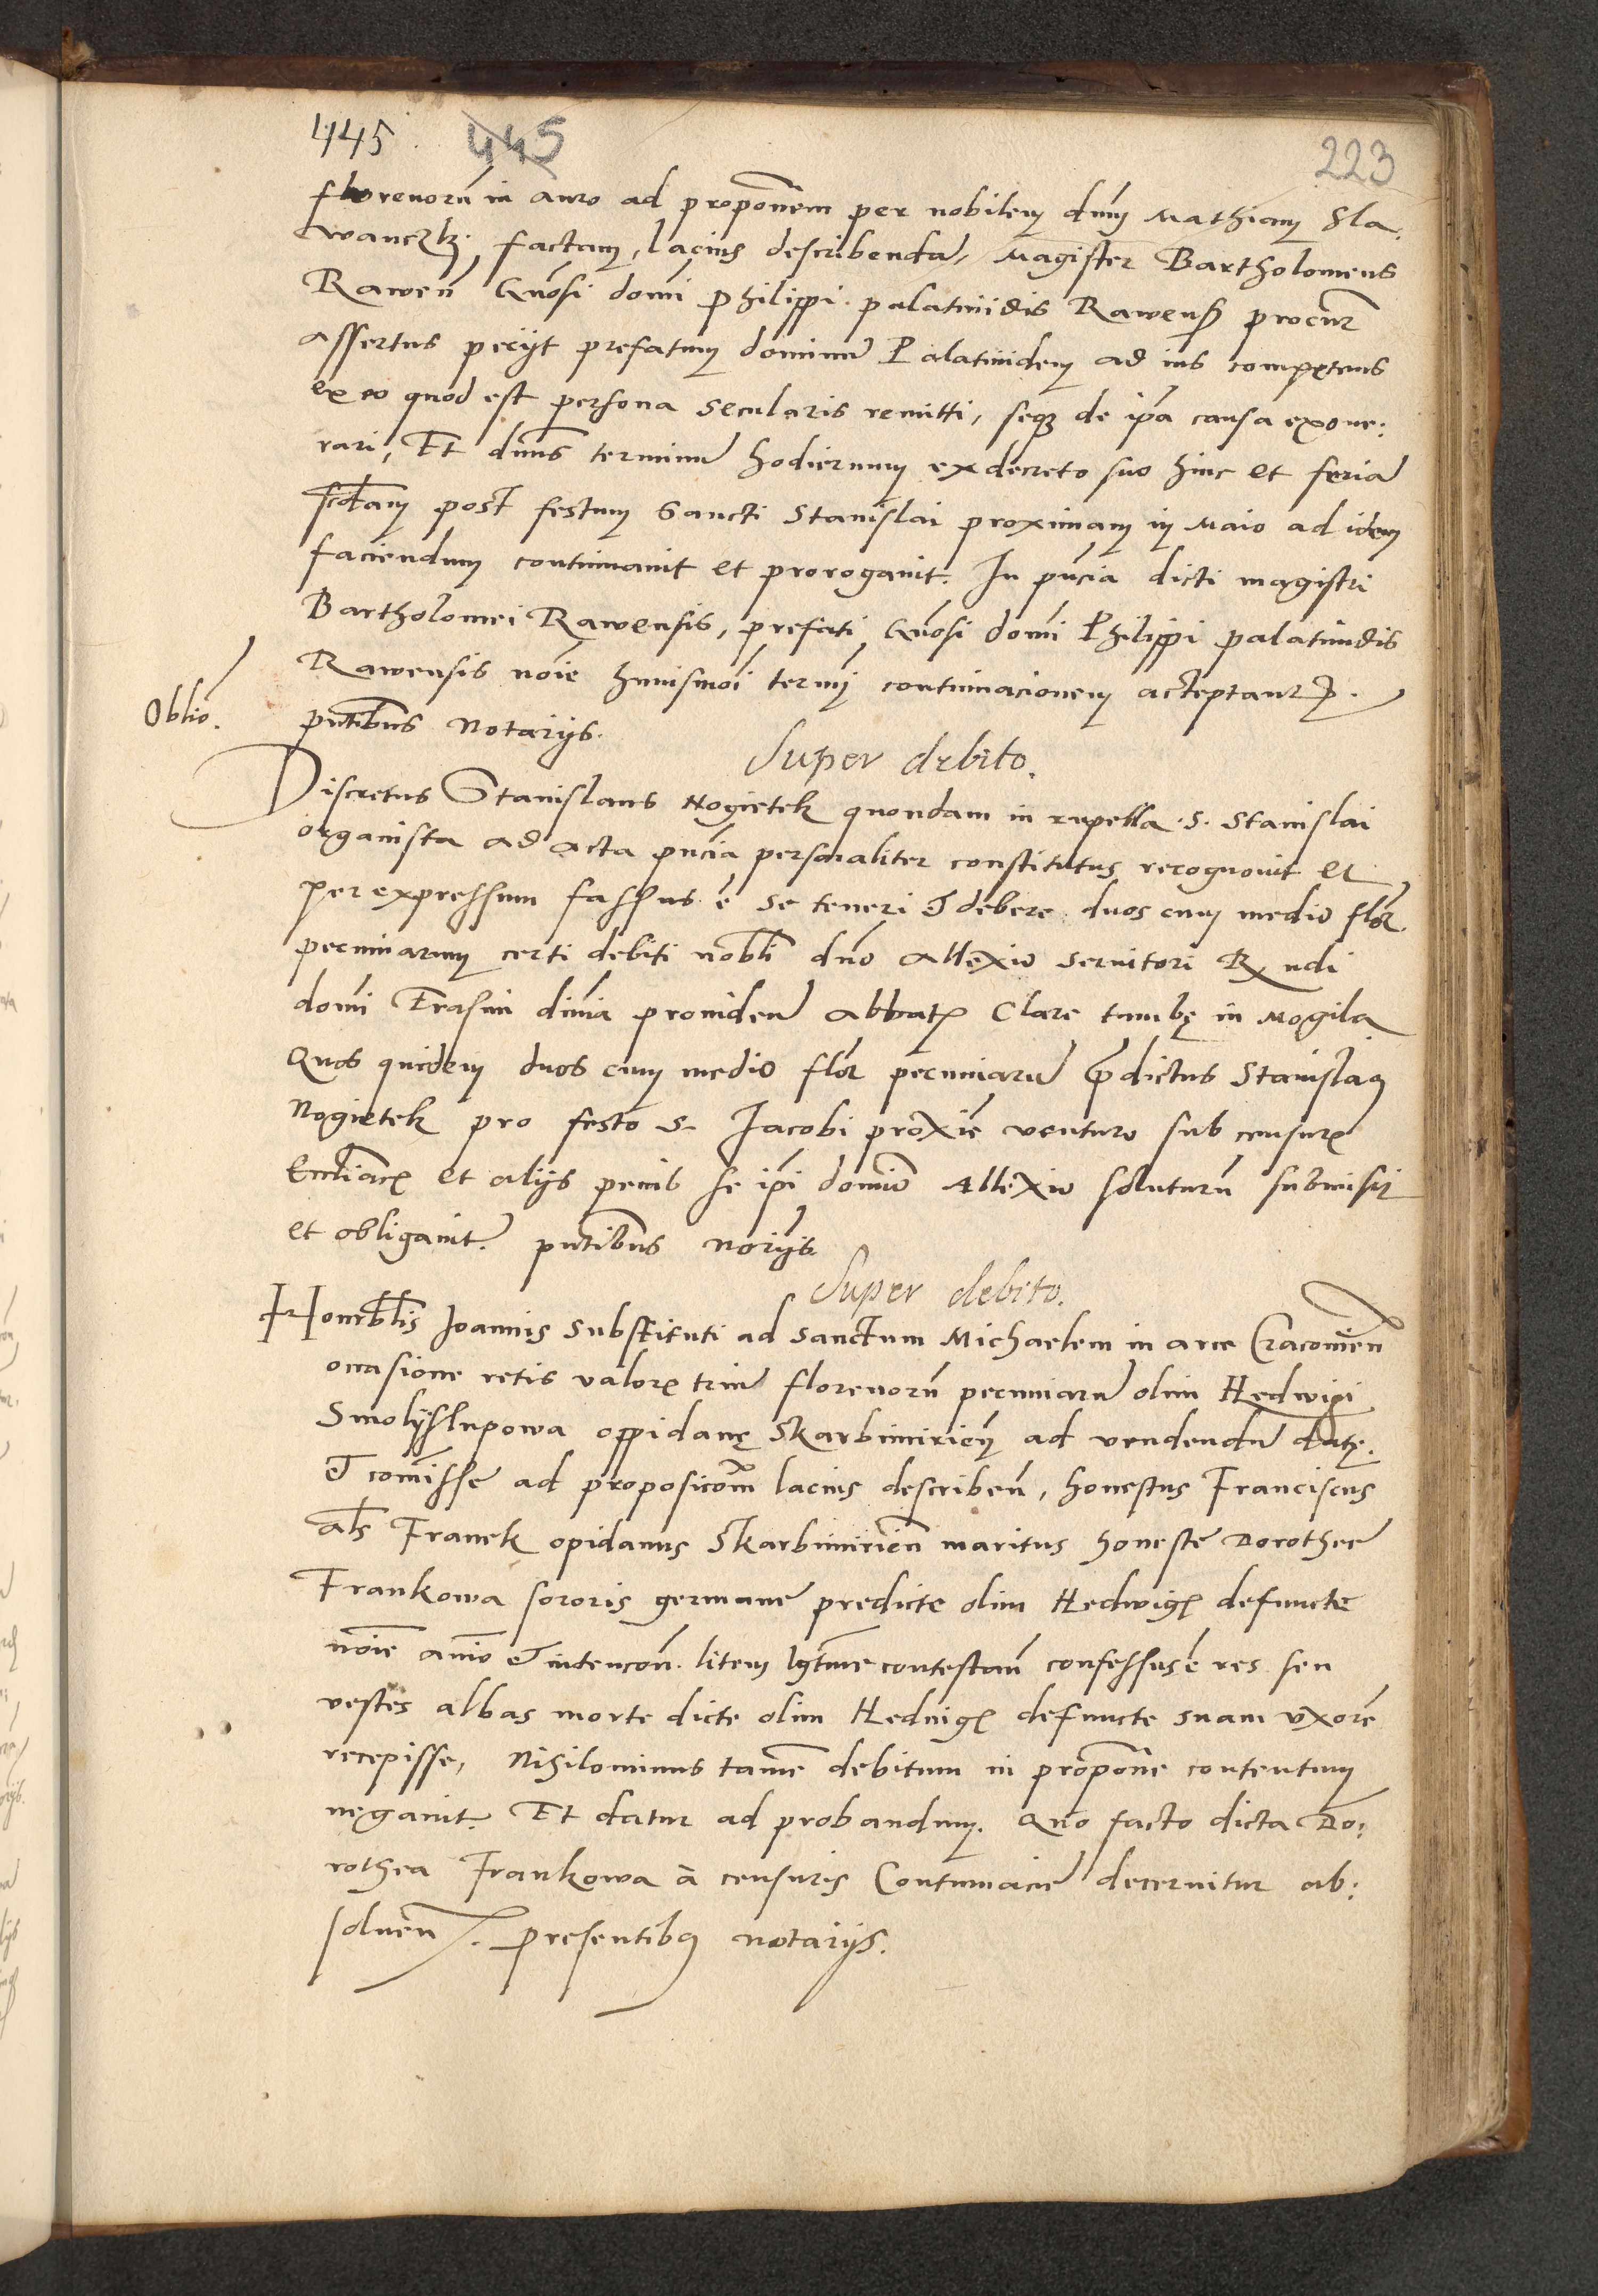 445. 445 223
florenorũ in auro ad proponẽm per nobilem dnũ Mathiam Sla-
wanczk, factam, lacius describendã, Magister Bartholomeus
Rawen̄ Gnõsi domĩ Philippi palatinidis Rawen̄ procur̃
assertus peciit prefatum dominũ Palatinidem ad ius competens
ex eo quod est persona secularis remitti, seqꝫ de ip̄a causa exone:
rari, Et dnũs terminũ hodiernum ex decreto suo hinc et feriã
scdãm post festum Sancti Stanislai proximam in Maio ad idem
faciendum continuauit et prorogauit. In pñcia dicti magistri
Bartholomei Rawensis, prefati Gnõsi domĩ Philippi palatinidis
Rawensis noĩe huiusmoĩ termĩ continuacionem acceptantis.
Oblio.
pñtibus Notariis.
Super debito.
Discretus Stanislaus Nogietek quondam in capella .S. Stanislai
organista ad acta pñcia personaliter constitutus recognouit et
per expressum fassus ẽ se teneri & debere duos cum medio flor̃
pecuniarum certi debiti nobli dño Allexio seruitori R̃ndi
domĩ Erasmi diuĩa prouideñ abbatis Clare tumbę in Mogila
Quos quidem duos cum medio flor̃ pecuniarũ p̃dictus Stanislaus
Nogietek pro festo S. Jacobi proxĩe venturo sub censuris
Ecclĩacis et aliis penis se ip̃i domĩo Allexio soluturũ submisit
et obligauit. pñtibus noriis
Super debito.
Honorblis Joannis substituti ad sanctum Michaelem in arce Cracouien̄
occasione retis valoris triũ florenorũ pecuniarũ olim Hedwigi
Smolyslupowa oppidanę Skarbimirien̄ ad vendendũ datę.
& comĩsse ad proposicõm lacius describen̄, honestus Franciscus
als Franek opidanus Skarbimirien̄ maritus honeste Dorothee
Frankowa sororis germane predicte olim Hedwigis defuncte
noĩe aĩo & intencõn. litem lgtĩme contestan̄ confessus ẽ res seu
vestes albas morte dicte olim Heduigis defuncte suam vxorẽ
recepisse, Nihilominus tamẽ debitum in propõne contentum
negauit. Et datur ad probandum. Quo facto dicta Do:
rothea Frankowa à censuris Contumacie decernitur ab:
soluen̄. presentibus notariis.